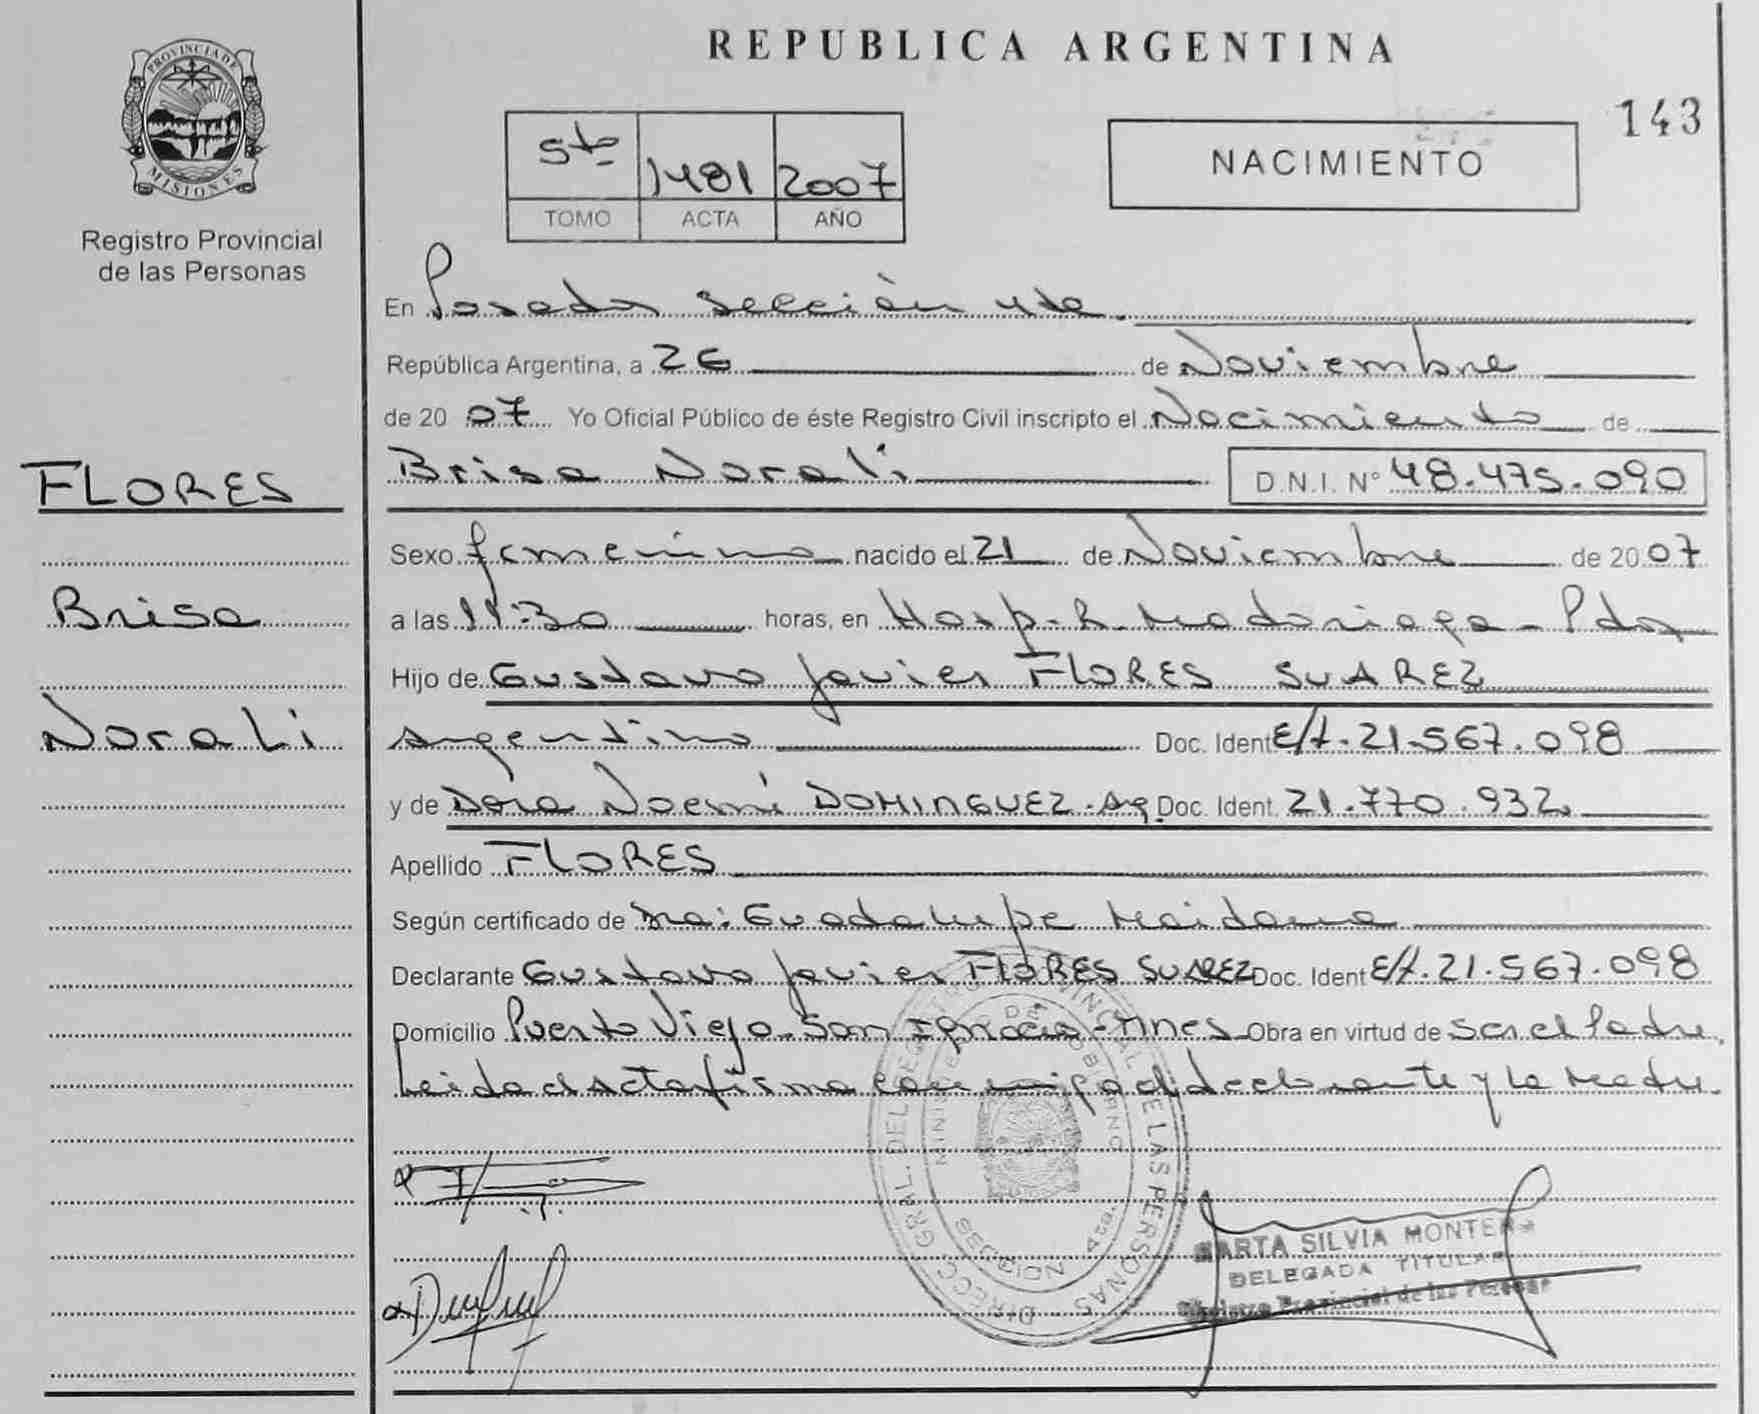 REPUBLICA ARGENTINA
143
PROVINCIA DE
MISIONES
Registro Provincial
de las Personas
5to 1481 2007
TOMO ACTA AÑO
NACIMIENTO
En Posadas sección 4ta.
República Argentina, a 26 de Noviembre
de 20 07 Yo Oficial Público de éste Registro Civil inscripto el Nacimiento de
Brisa Norali D.N.I. Nº 48.475.090
FLORES
Brisa
Norali
Sexo femenino nacido el 21 de Noviembre de 20 07
a las 11:30 horas, en Hosp. R. Madariaga - Pdas
Hijo de Gustavo Javier FLORES SUAREZ
argentino Doc. Ident E/t. 21.567.098
y de Dora Noemí DOMINGUEZ - Ag Doc. Ident. 21.770.932
Apellido FLORES
Según certificado de Dra: Guadalupe Maidana
Declarante Gustavo Javier FLORES SUAREZ Doc. Ident E/t. 21.567.098
Domicilio Puerto Viejo - San Ignacio - Mnes Obra en virtud de ser el Padre,
Leida el Acta firma conmigo el declarante y la Madre.
DIRECC. GRAL. DEL REGISTRO PROVINCIAL DE LAS PERSONAS
MINISTERIO DE GOBIERNO
MARTA SILVIA MONTERO
DELEGADA TITULAR
Registro Provincial de las Personas